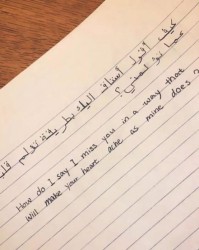 كيف أقول أشتاق إليك بطريقة تؤلم قلبك
كما تؤلمني؟
How do I say I miss you in a way that
will make your heart ache as mine does?